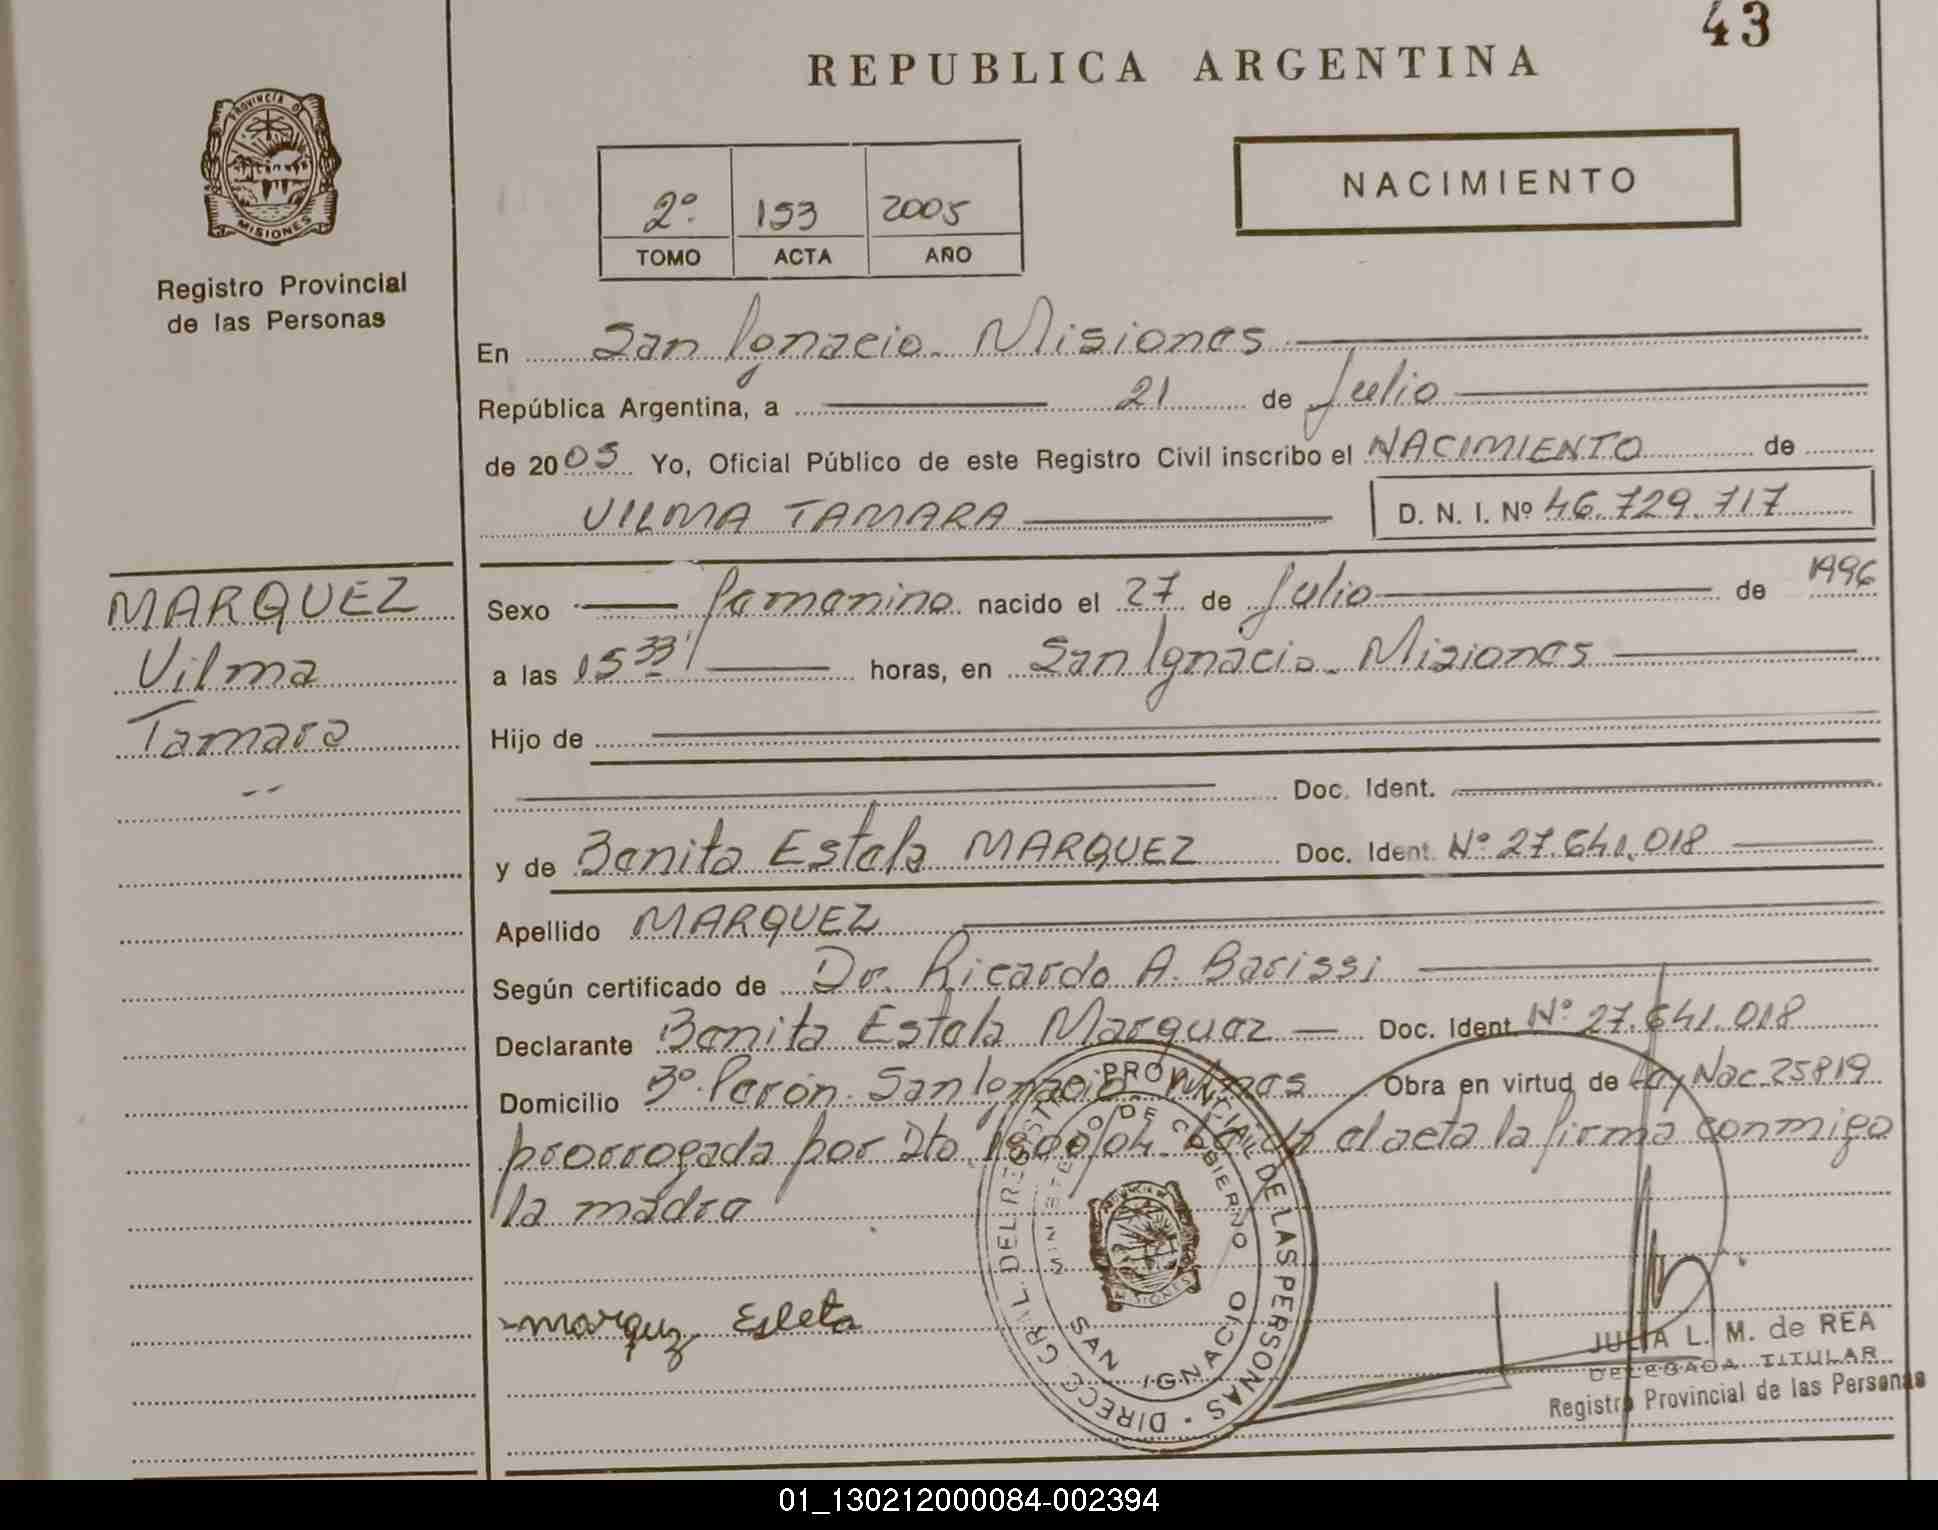 43
REPUBLICA ARGENTINA
PROVINCIA DE
MISIONES
Registro Provincial
de las Personas
2º. 153 2005
TOMO ACTA AÑO
NACIMIENTO
En San Ignacio. Misiones
República Argentina, a 21 de Julio
de 2005 Yo, Oficial Público de este Registro Civil inscribo el NACIMIENTO de
VILMA TAMARA D. N. I. Nº 46.729.717
MARQUEZ
Vilma
Tamara
Sexo femenino nacido el 27 de Julio de 1996
a las 15 33' horas, en San Ignacio. Misiones
Hijo de
Doc. Ident.
y de Benita Estela MARQUEZ Doc. Ident. Nº 27.641.018
Apellido MARQUEZ
Según certificado de Dr. Ricardo A. Barissi
Declarante Benita Estela Marquez Doc. Ident. Nº 27.641.018
Domicilio Bº. Perón. San Ignacio Mnes Obra en virtud de Ley Nac. 25819
prorrogada por Dto. 1800/04. Leída el acta la firma conmigo
la madre
marquz Esleta
DIRECC GRAL DEL REGISTRO PROVINCIAL DE LAS PERSONAS
MINISTERIO DE GOBIERNO
SAN IGNACIO
MISIONES
JULIA L. M. de REA
DELEGADA TITULAR
Registro Provincial de las Personas
01_130212000084-002394